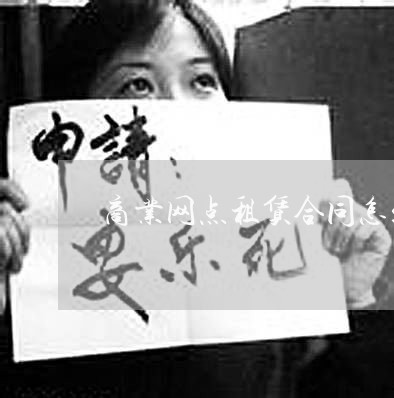 申請：
商業网点租赁合同怎
安乐死